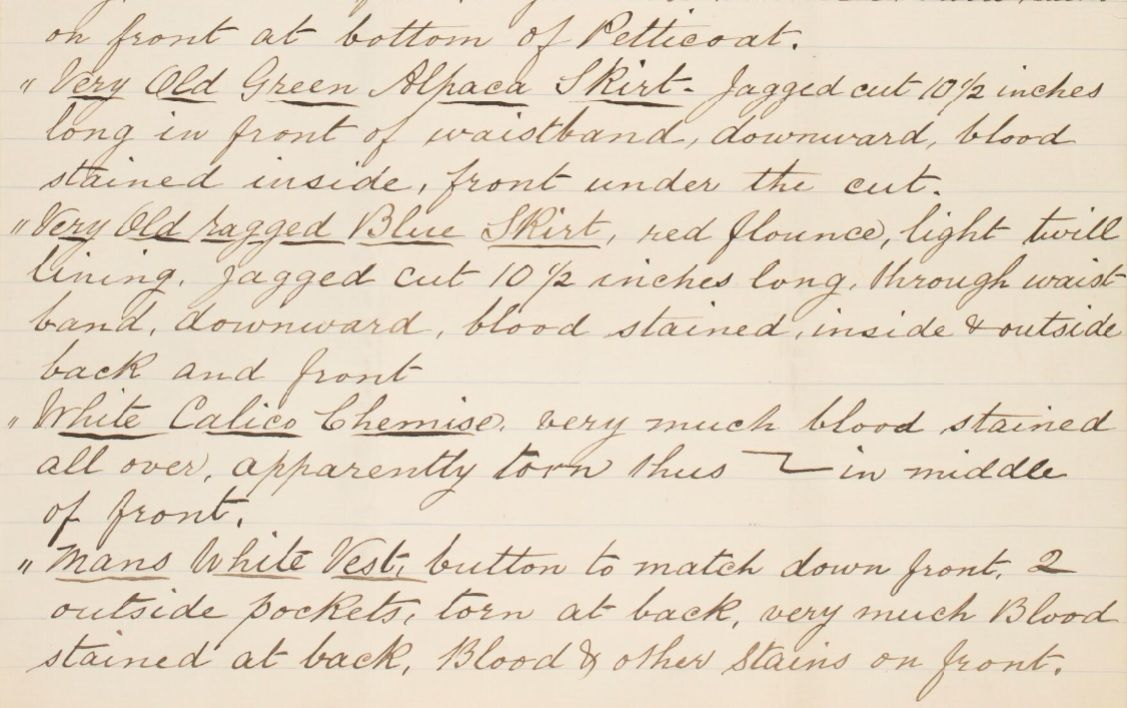 on front at bottom of Petticoat.
" Very Old Green Alpaca Skirt - Jagged cut 10 1/2 inches
long in front of waistband, downward, blood
stained inside, front under the cut.
" Very Old ragged Blue Skirt, red flounce, light twill
lining. jagged cut 10 1/2 inches long, through waist
band, downward, blood stained, inside & outside
back and front
" White Calico Chemise, very much blood stained
all over, apparently torn thus in middle
of front.
" Mans White Vest, button to match down front, 2
outside pockets, torn at back, very much Blood
stained at back, Blood & other stains on front.